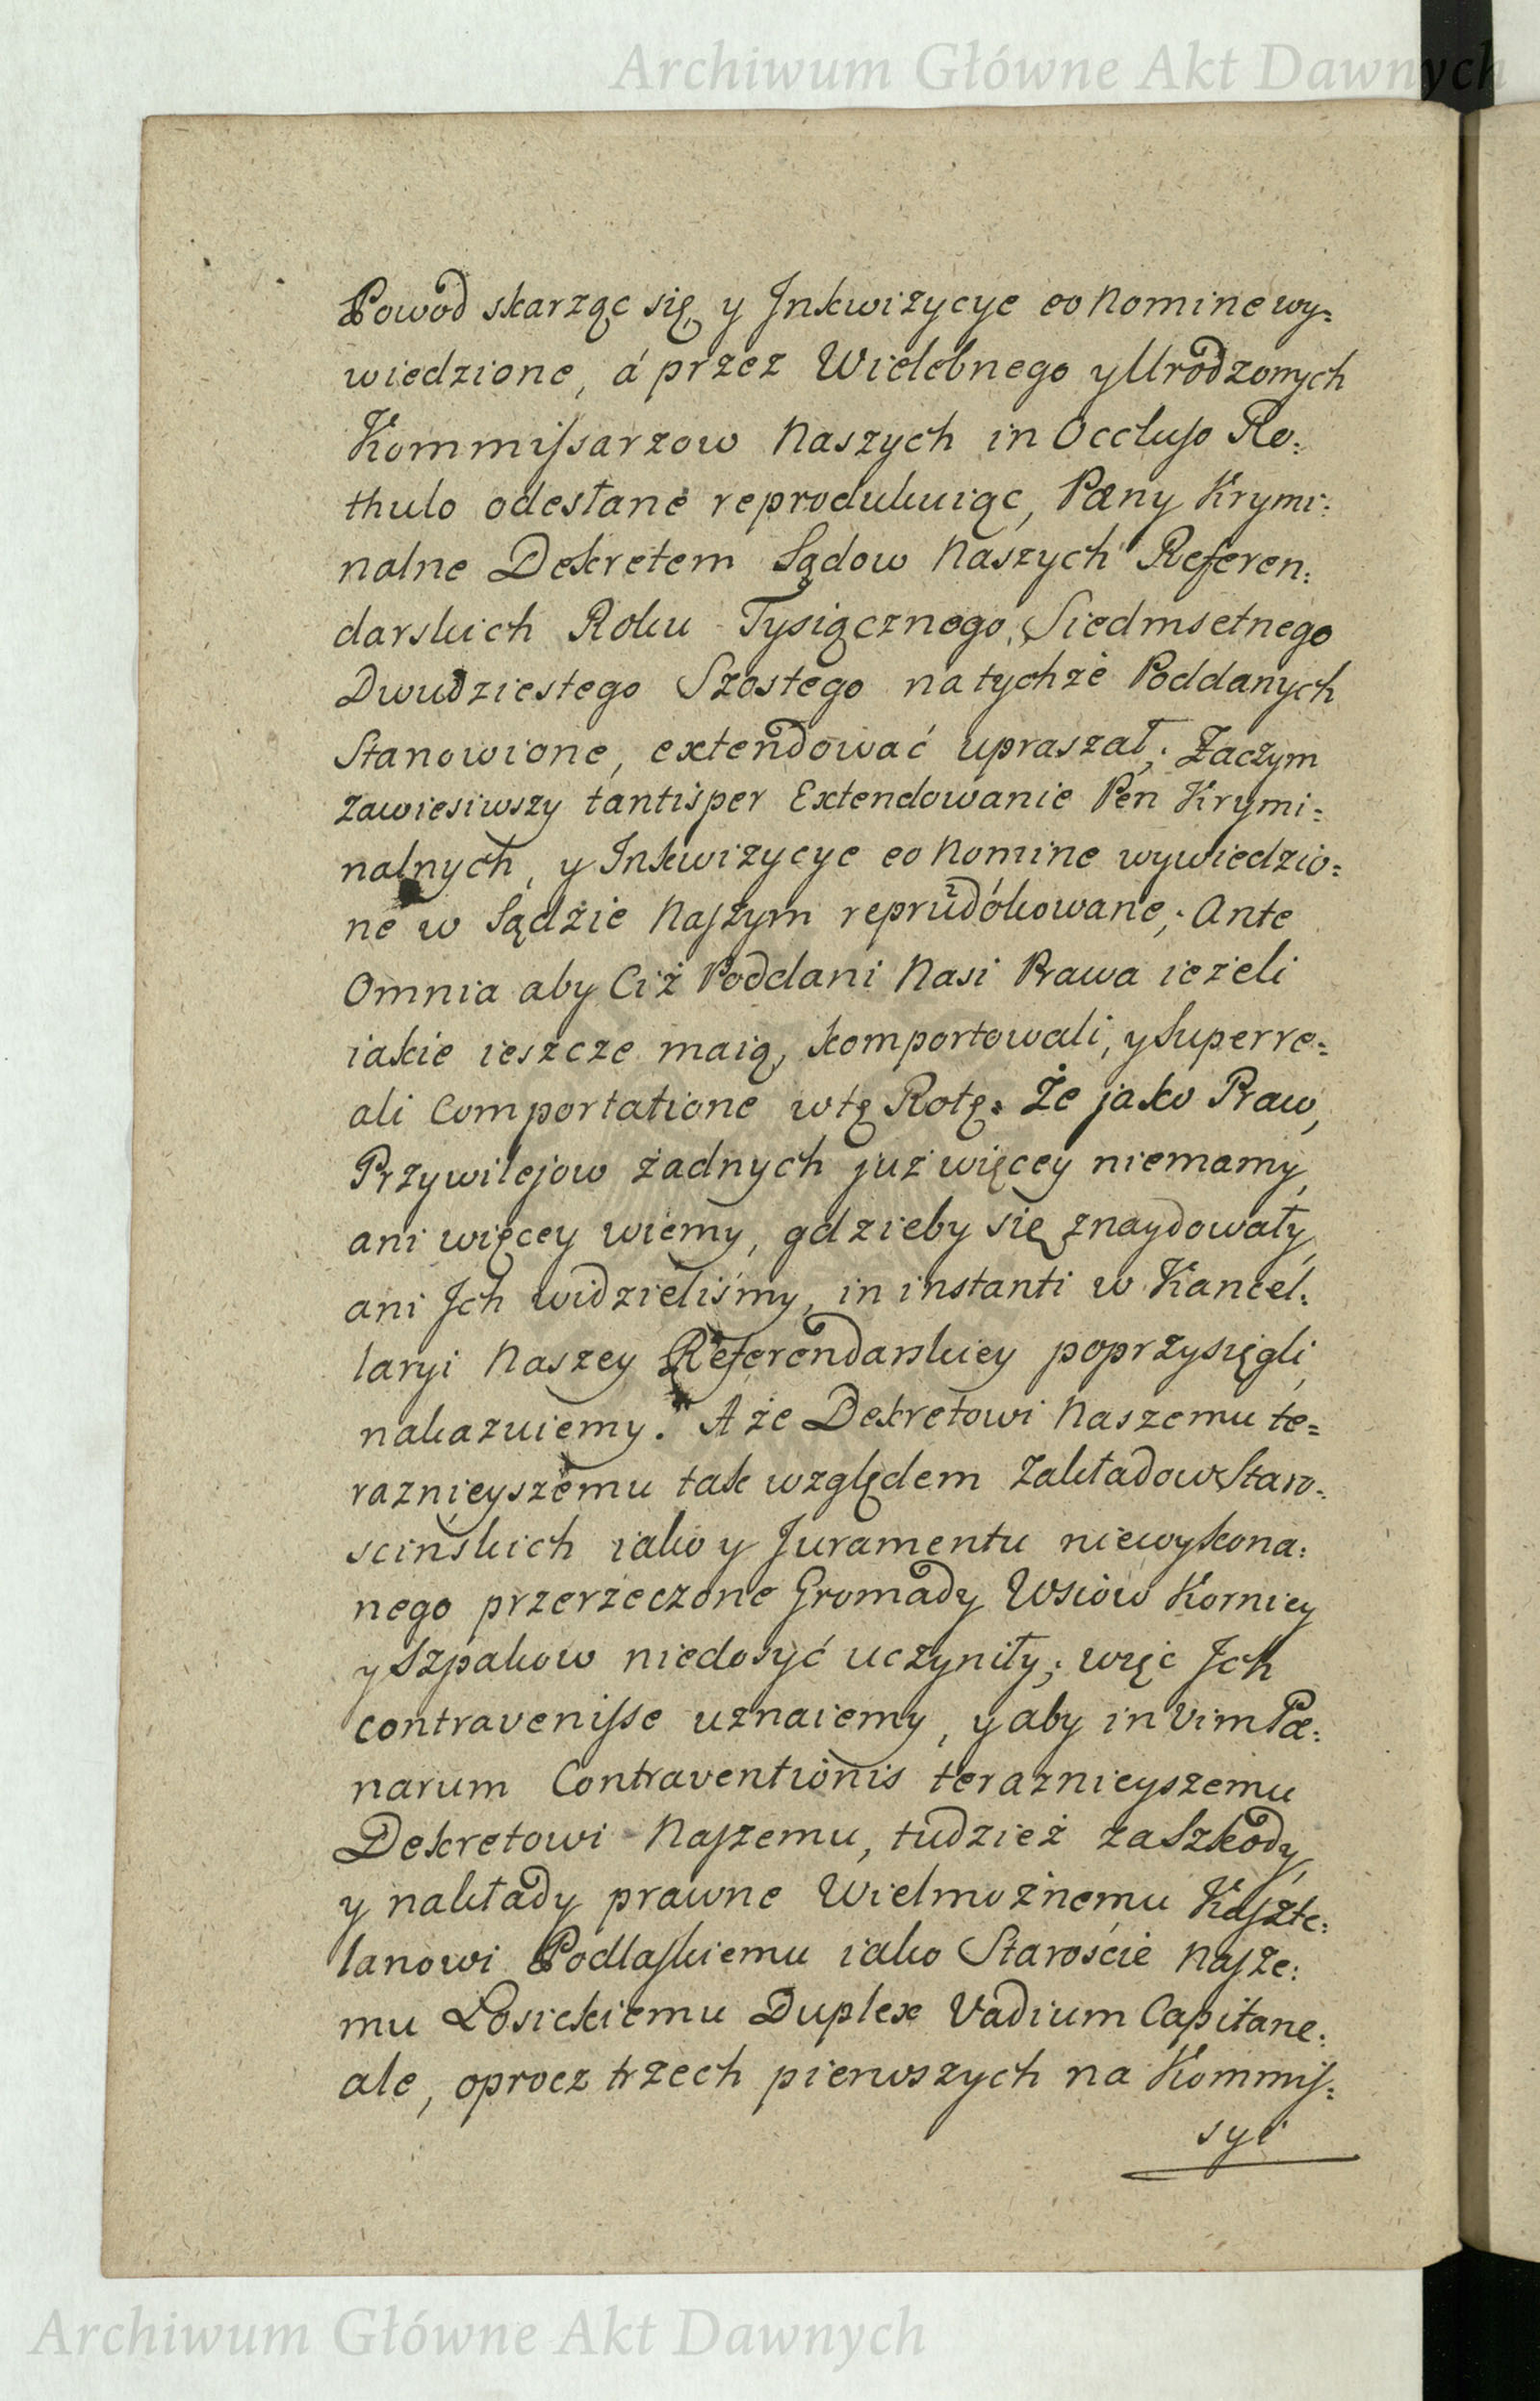 Archiwum Główne Akt Dawnych
Powod skarząc się, y Jnkwizycye eo Nomine wy=
wiedzione, á przez Wielebnego y Urodzonych
Kommiſsarzow Naszych in Occluſo Ro:
thulo odesłane reprodukuiąc, Pæny Krymi:
nalne Dekretem Sądow Naszych Referen:
darskich Roku Tysiącznego, Siedmsetnego
Dwudziestego Szostego na tychże Poddanych
Stanowione, extendować upraszał; Zaczym
zawiesiwszy tantisper Extendowanie Pen Krymi=
nalnych, y Jnkwizycye eo Nomine wywiedzio=
ne w Sądzie Naſzym reprodukowane; Ante
Omnia aby Ciż Poddani Nasi Prawa ieżeli
iakie ieszcze maią, komportowali, y Super re=
ali Comportatione w tę Rotę. Że jako Praw,
Przywilejow żadnych już więcey niemamy,
ani więcey wiemy, gdzieby się znaydowały,
ani Jch widzieliśmy, in instanti w Kancel:
laryi Naszey Referendarskiey poprzysięgli,
nakazuiemy. A że Dekretowi Naszemu te=
raznieyszemu tak względem Zakładow Staro:
scińskich iako y Juramentu niewykona:
nego przerzeczone Gromady Wsiow Kornicy
y Szpakow niedosyć uczyniły; więc Jch
contraveniſse uznaiemy, y aby in Vim Pæ:
narum Contraventionis teraznieyszemu
Dekretowi Naſzemu, tudzież za Szkody,
y nakłady prawne Wielmożnemu Kaſzte:
lanowi Podlaſkiemu iako Staroście Naſze:
mu Łosickiemu Duplex Vadium Capitane:
ale, oprocz trzech pierwszych na Kommiſ:
syi
Archiwum Główne Akt Dawnych